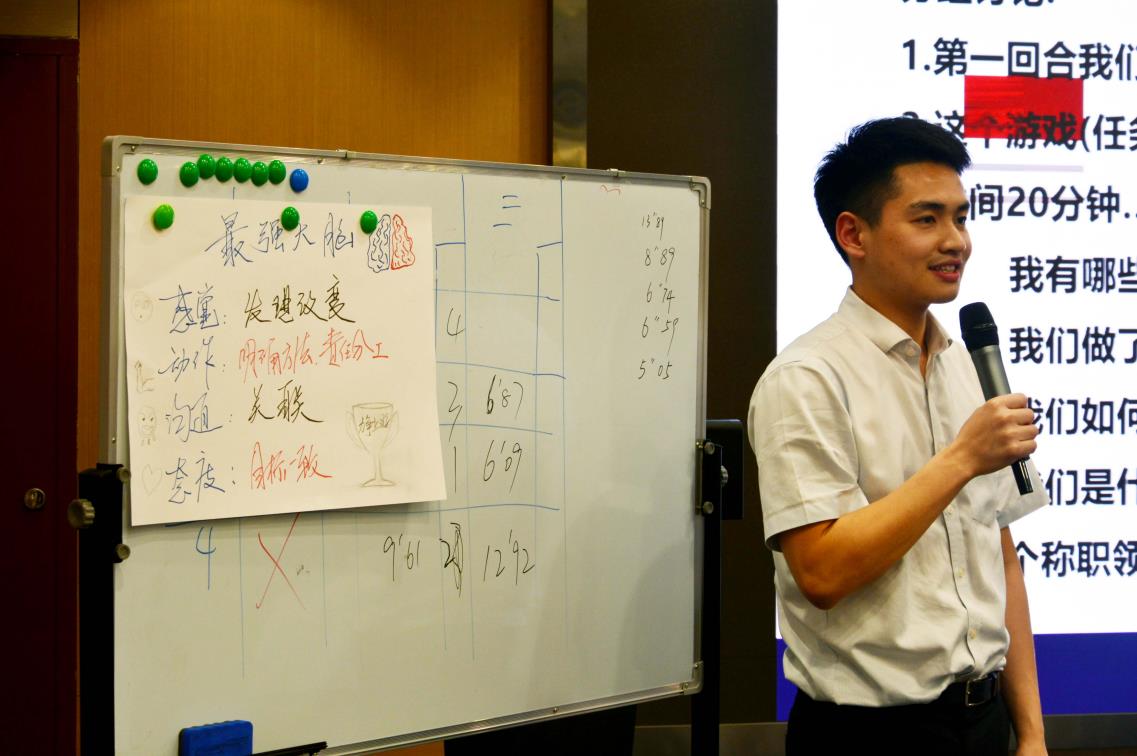 最强大脑
感觉：发现改变
动作：明确方法、责任分工
沟通：关联
态度：目标一致
二
4
3 6'87
1 6'09
4 9'61 12'92
13"89
8"89
6"74
6"59
5"05
1.第一回合我们
这个游戏(任务
间20分钟..
我有哪些
我们做了
我们如何
我们是什
个称职领